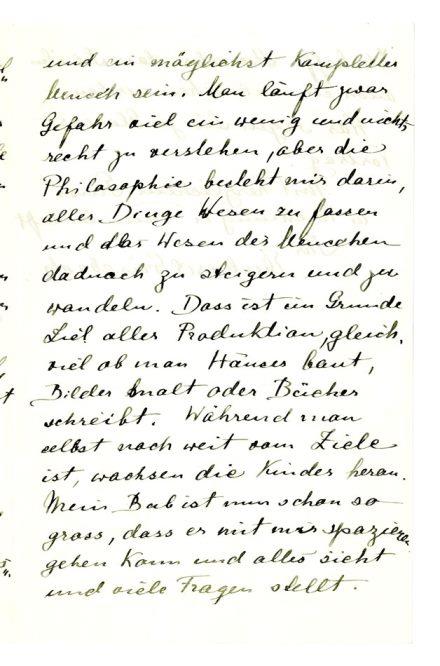 und ein möglichst kompletter
Mensch sein. Man läuft zwar
Gefahr viel ein wenig und nichts
recht zu verstehen, aber die
Philosophie besteht mir darin,
aller Dinge Wesen zu fassen
und das Wesen des Menschen
dadurch zu steigern und zu
wandeln. Dass ist im Grunde
Ziel aller Produktion, gleich-
viel ob man Häuser baut,
Bilder malt oder Bücher
schreibt. Während man
selbst noch weit vom Ziele
ist, wachsen die Kinder heran.
Mein Bub ist nun schon so
gross, dass er mit mir spazieren
gehen kann und alles sieht
und viele Fragen stellt.